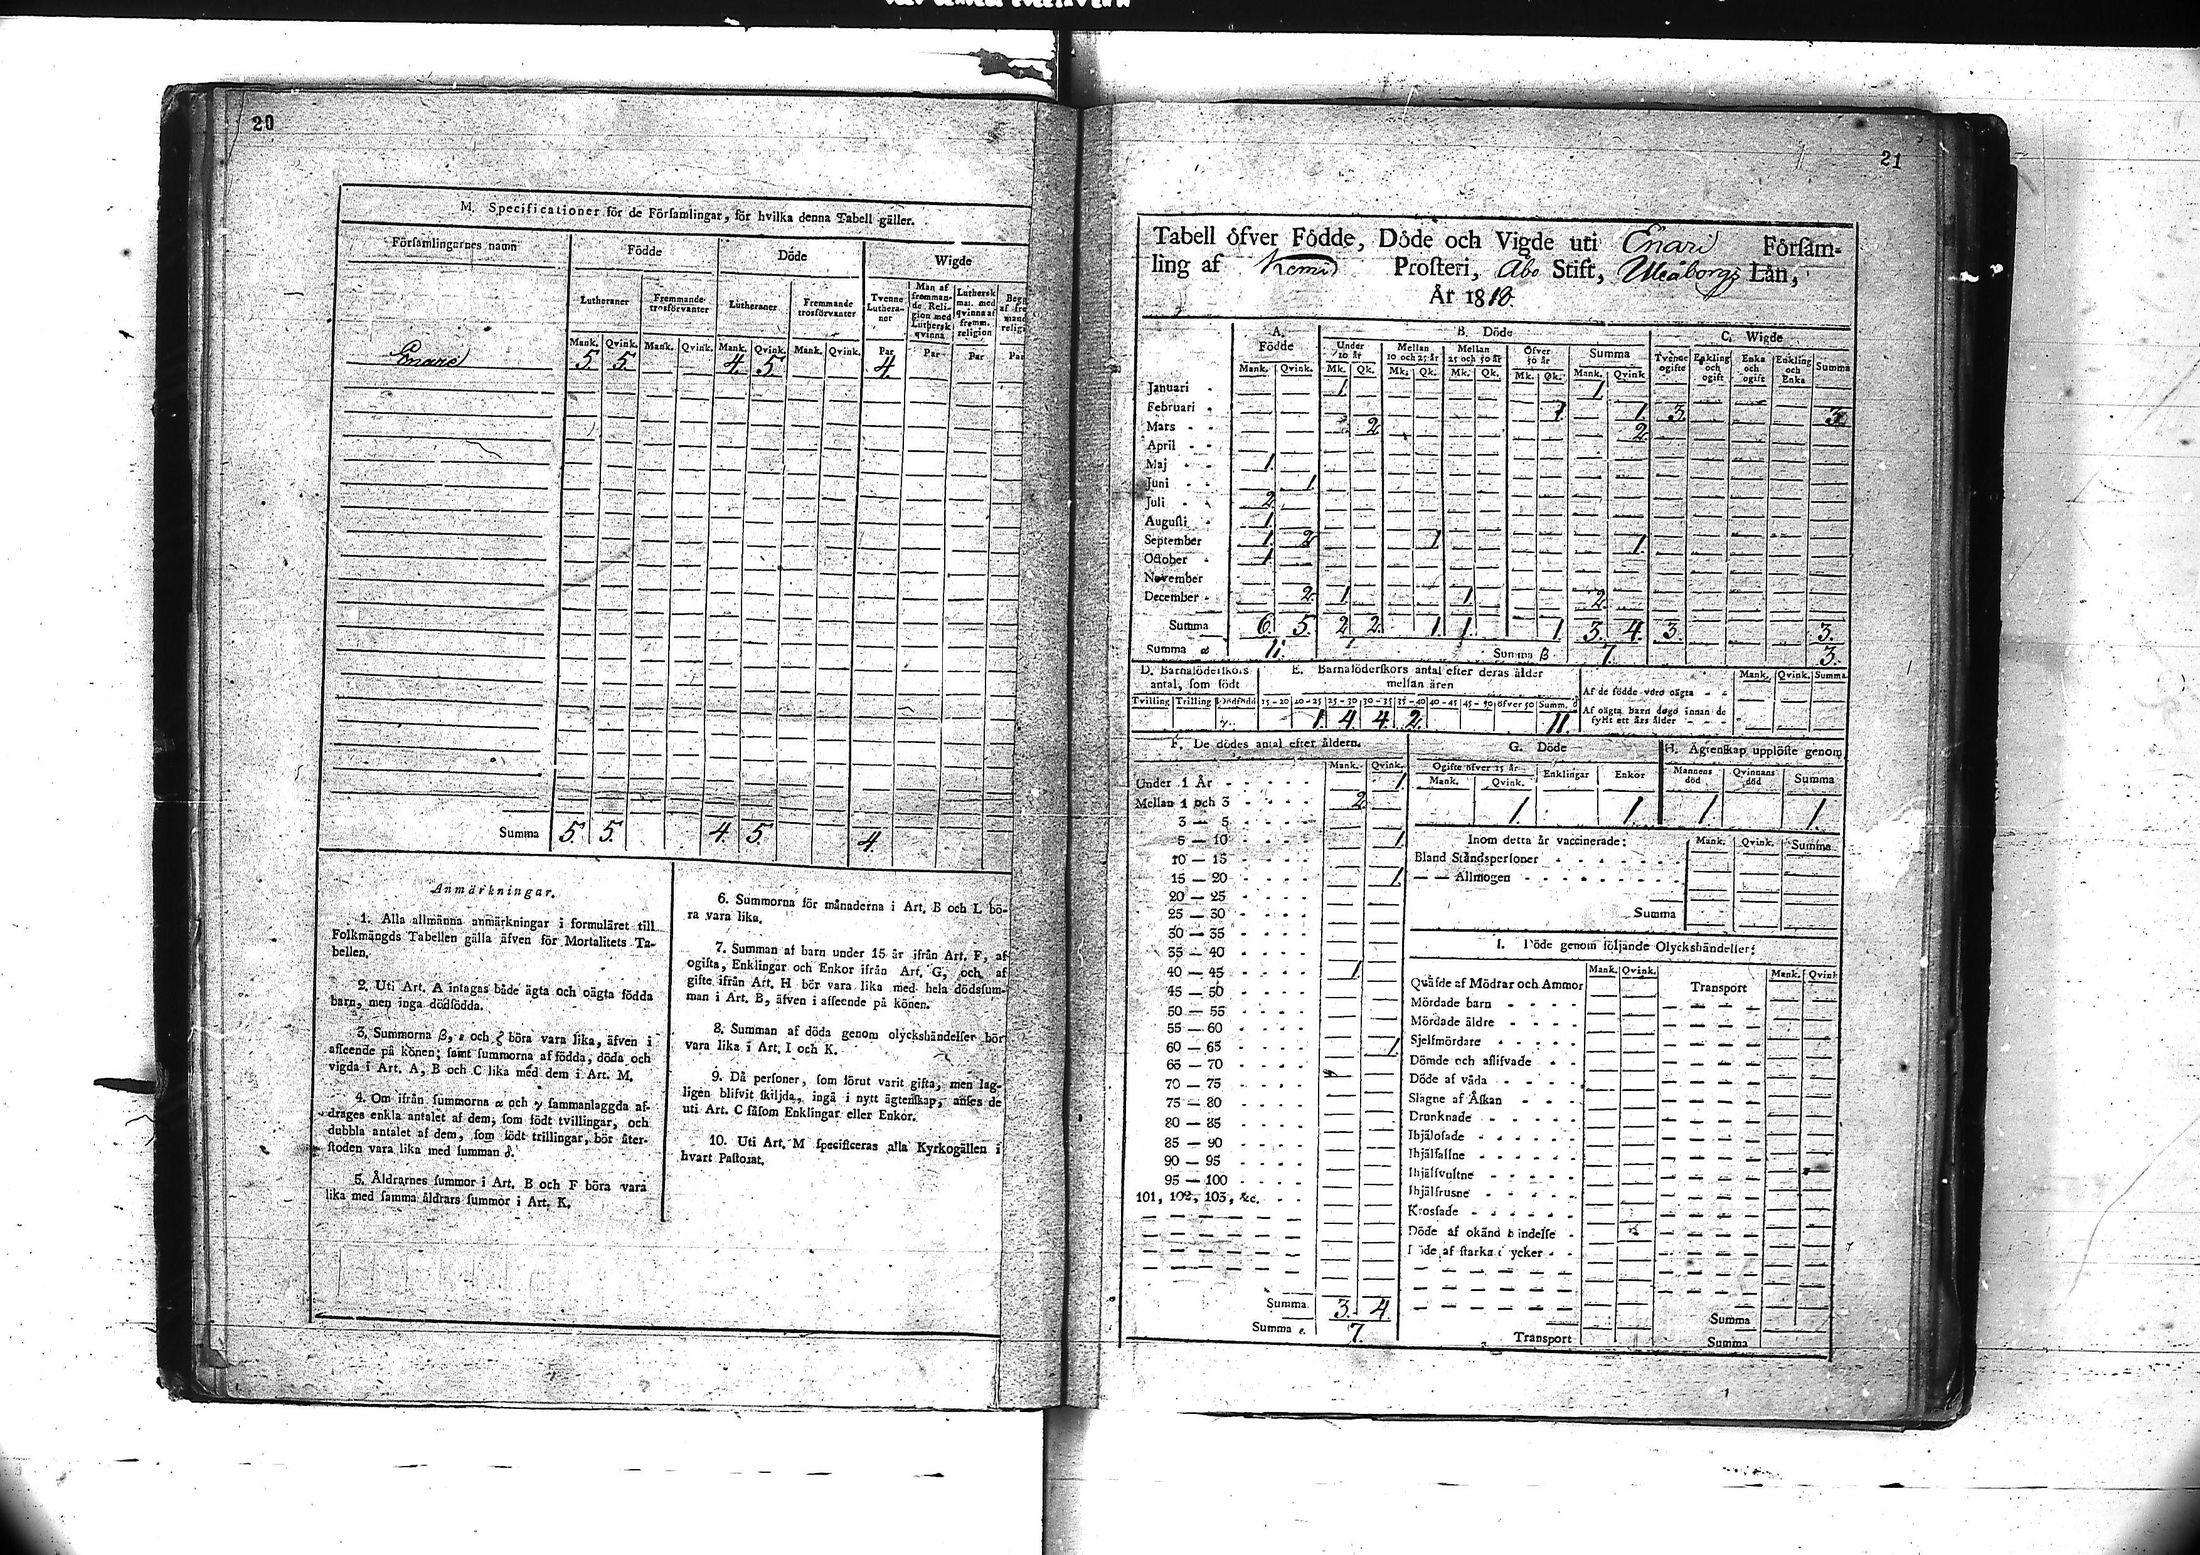 20
M. Specificationer för de Församlingar, för hvilka denna Tabell gäller.
Församlingarnes namn Födde Döde Wigde
Lutheraner Fremmande trosförvanter Lutheraner Fremmande trosförvanter Tvenne Lutheraner Man af fremmande Religion med Luthersk qvinna Luthersk man med qvinna af fremm. religion
Mank. Qvink. Mank. Qvink. Mank. Qvink. Mank. Qvink. Par Par Par Par
Enare 5 5 4 5 4
Summa 5 5 4 5 4
Anmärkningar.
1. Alla allmänna anmärkningar i formuläret till
Folkmängds Tabellen gälla äfven för Mortalitets Ta-
bellen.
2. Uti Art. A intagas både ägta och oägta födda
barn, men inga dödfödda.
3. Summorna β, ε och ζ böra vara lika, äfven i
afseende på könen; samt summorna af födda, döda och
vigda i Art. A, B och C lika med dem i Art. M.
4. Om ifrån summorna α och γ sammanlaggda af-
drages enkla antalet af dem, som födt tvillingar, och
dubbla antalet af dem, som födt trillingar, bör åter-
stoden vara lika med summan δ.
5. Åldrarnes summor i Art. B och F böra vara
lika med samma åldrars summor i Art. K.
6. Summorna för månaderna i Art. B och L bö-
ra vara lika.
7. Summan af barn under 15 år ifrån Art. F, af
ogifta, Enklingar och Enkor ifrån Art. G, och af
gifte ifrån Art. H bör vara lika med hela dödssum-
man i Art. B, äfven i afseende på könen.
8. Summan af döda genom olyckshändelser bör
vara lika i Art. I och K.
9. Då personer, som förut varit gifta, men lag-
ligen blifvit skiljda, ingå i nytt ägtenskap, anses de
uti Art. C såsom Enklingar eller Enkor.
10. Uti Art. M specificeras alla Kyrkogällen i
hvart Pastorat.
21
Tabell öfver Födde, Döde och Vigde uti Enari Försam-
ling af Kemi Prosteri, Åbo Stift, Uleåborgs Län,
År 1818
A. Födde B. Döde C. Wigde
Under 10 år Mellan 10 och 25 år Mellan 25 och 50 år Öfver 50 år Summa Tvenne ogifte Enkling och ogift Enka och ogift Enkling och Enka Summa
Mank. Qvink. Mk. Qk. Mk. Qk. Mk. Qk. Mk. Qk. Mank. Qvink
Januari 1 1
Februari 1 1 3 3
Mars 2 2
April
Maj 1
Juni 1
Juli 2
Augusti 1
September 1 2 1 1
October 1
November
December 2 1 1 2
Summa 6 5 2 2 1 1 1 3 4 3 3
Summa α 11 Summa β 7 3
D. Barnaföderskors antal, som födt
E. Barnaföderskors antal efter deras ålder mellan åren
Mank. Qvink. Summa
Af de födde voro oägta
Af oägta barn dogo innan de fyllt ett års ålder
Tvilling Trilling Dödfödd 15-20 20-25 25-30 30-35 35-40 40-45 45-50 öfver 50 Summ. δ
γ 1 4 4 2 11
F. De dödes antal efter åldern.
Mank. Qvink.
Under 1 År 1
Mellan 1 och 3 2
3 — 5
5 — 10 1
10 — 15
15 — 20 1
20 — 25
25 — 30
30 — 35
35 — 40
40 — 45 1
45 — 50
50 — 55
55 — 60
60 — 65 1
65 — 70
70 — 75
75 — 80
80 — 85
85 — 90
90 — 95
95 — 100
101, 102, 103, &c.
Summa 3 4
Summa ε. 7.
G. Döde
Ogifte öfver 15 år Enklingar Enkor
Mank. Qvink.
1 1
H. Ägtenskap upplöste genom
Mannens död Qvinnans död Summa
1 1
Inom detta år vaccinerade: Mank. Qvink. Summa
Bland Ståndspersoner
— — Allmogen
Summa
I. Döde genom följande Olyckshändelser:
Mank. Qvink. Mank. Qvink
Quäfde af Mödrar och Ammor Transport
Mördade barn
Mördade äldre
Sjelfmördare
Dömde och aflifvade
Döde af våda
Slagne af Åskan
Drunknade
Ihjälosade
Ihjälfallne
Ihjälsvultne
Ihjälfrusne
Krossade
Döde af okänd händelse
Döde af starka drycker
Summa
Transport Summa